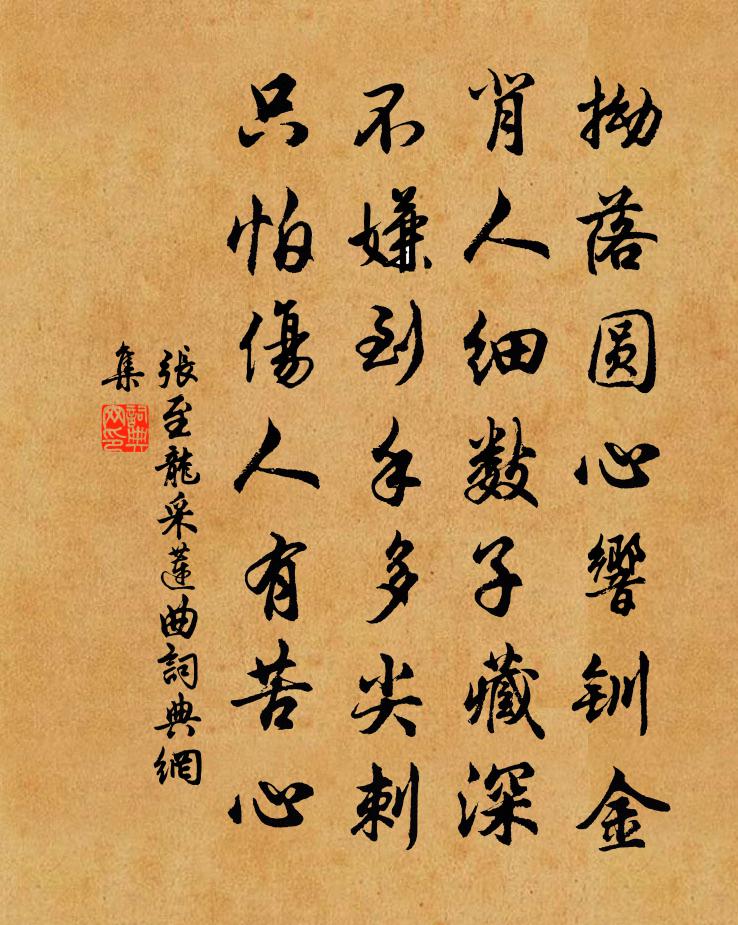 拗落圓心響釧金
背人細數子藏深
不嫌到手多尖刺
只怕傷人有苦心
張至龍采蓮曲詞典網
集
詞典
网印